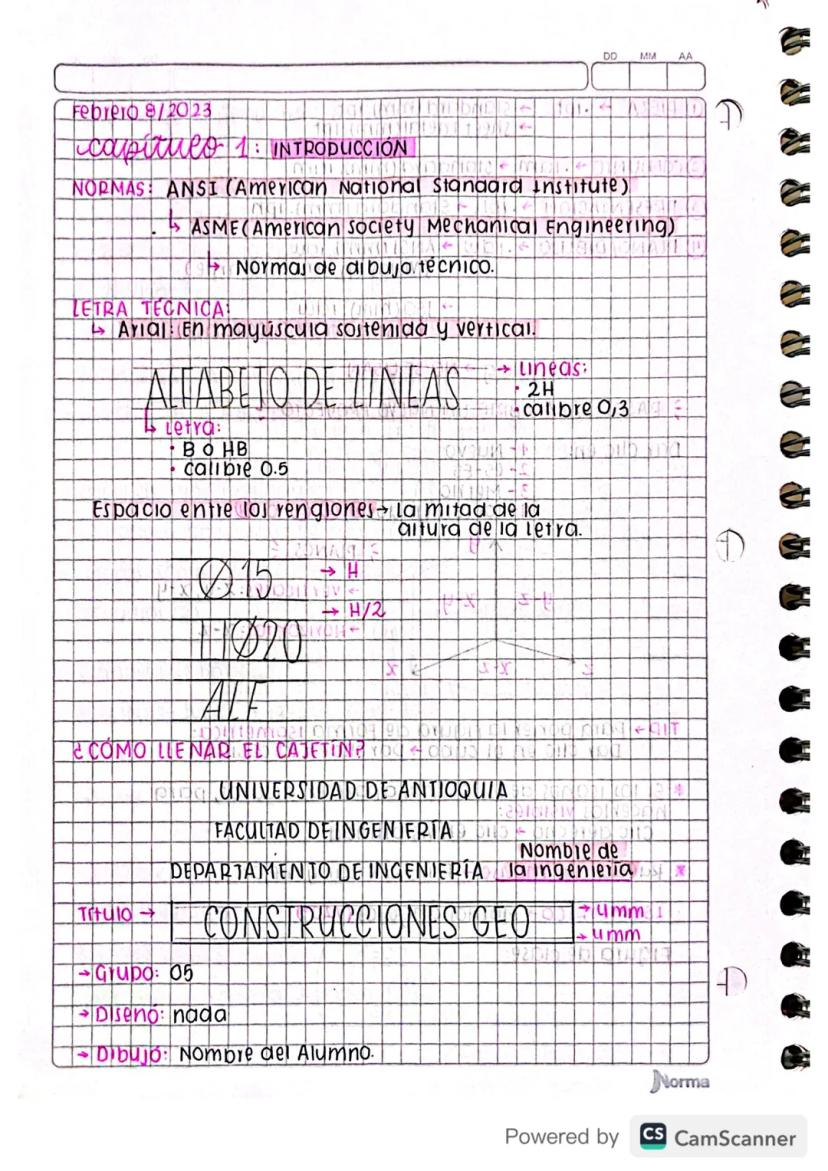 DD MM AA
Febrero 8/2023
Capítulo 1: INTRODUCCIÓN
NORMAS: ANSI (American National Standard Institute)
↳ ASME (American Society Mechanical Engineering)
↳ Normas de dibujo técnico.
LETRA TÉCNICA:
↳ Arial: En mayúscula sostenida y vertical.
ALFABETO DE LINEAS → Lineas:
• 2H
• calibre 0,3
↳ Letra:
• B ó HB
• calibre 0.5
Espacio entre los renglones → La mitad de la
altura de la letra.
Ø 15 → H
→ H/2
HØ20
ALF
¿CÓMO LLENAR EL CAJETÍN?
UNIVERSIDAD DE ANTIOQUIA
FACULTAD DE INGENIERÍA
DEPARTAMENTO DE INGENIERÍA Nombre de
la ingeniería
Título → CONSTRUCCIONES GEO → 4mm
→ 4mm
→ Grupo: 05
→ Diseñó: nada
→ Dibujó: Nombre del Alumno.
Norma
Powered by CS CamScanner